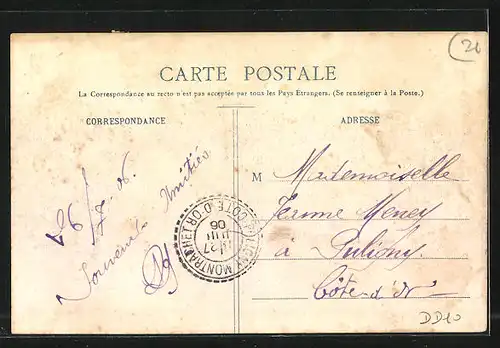 (20)
CARTE POSTALE
La Correspondance au recto n'est pas acceptée par tous les Pays Etrangers. (Se renseigner à la Poste.)
CORRESPONDANCE
ADRESSE
M Mademoiselle
Jeanne Meney
à Puligny
Côte-d'Or
Souvenir
Amitiés
PULIGNY-MONTRACHET
CÔTE-D'OR
27
06
DD10